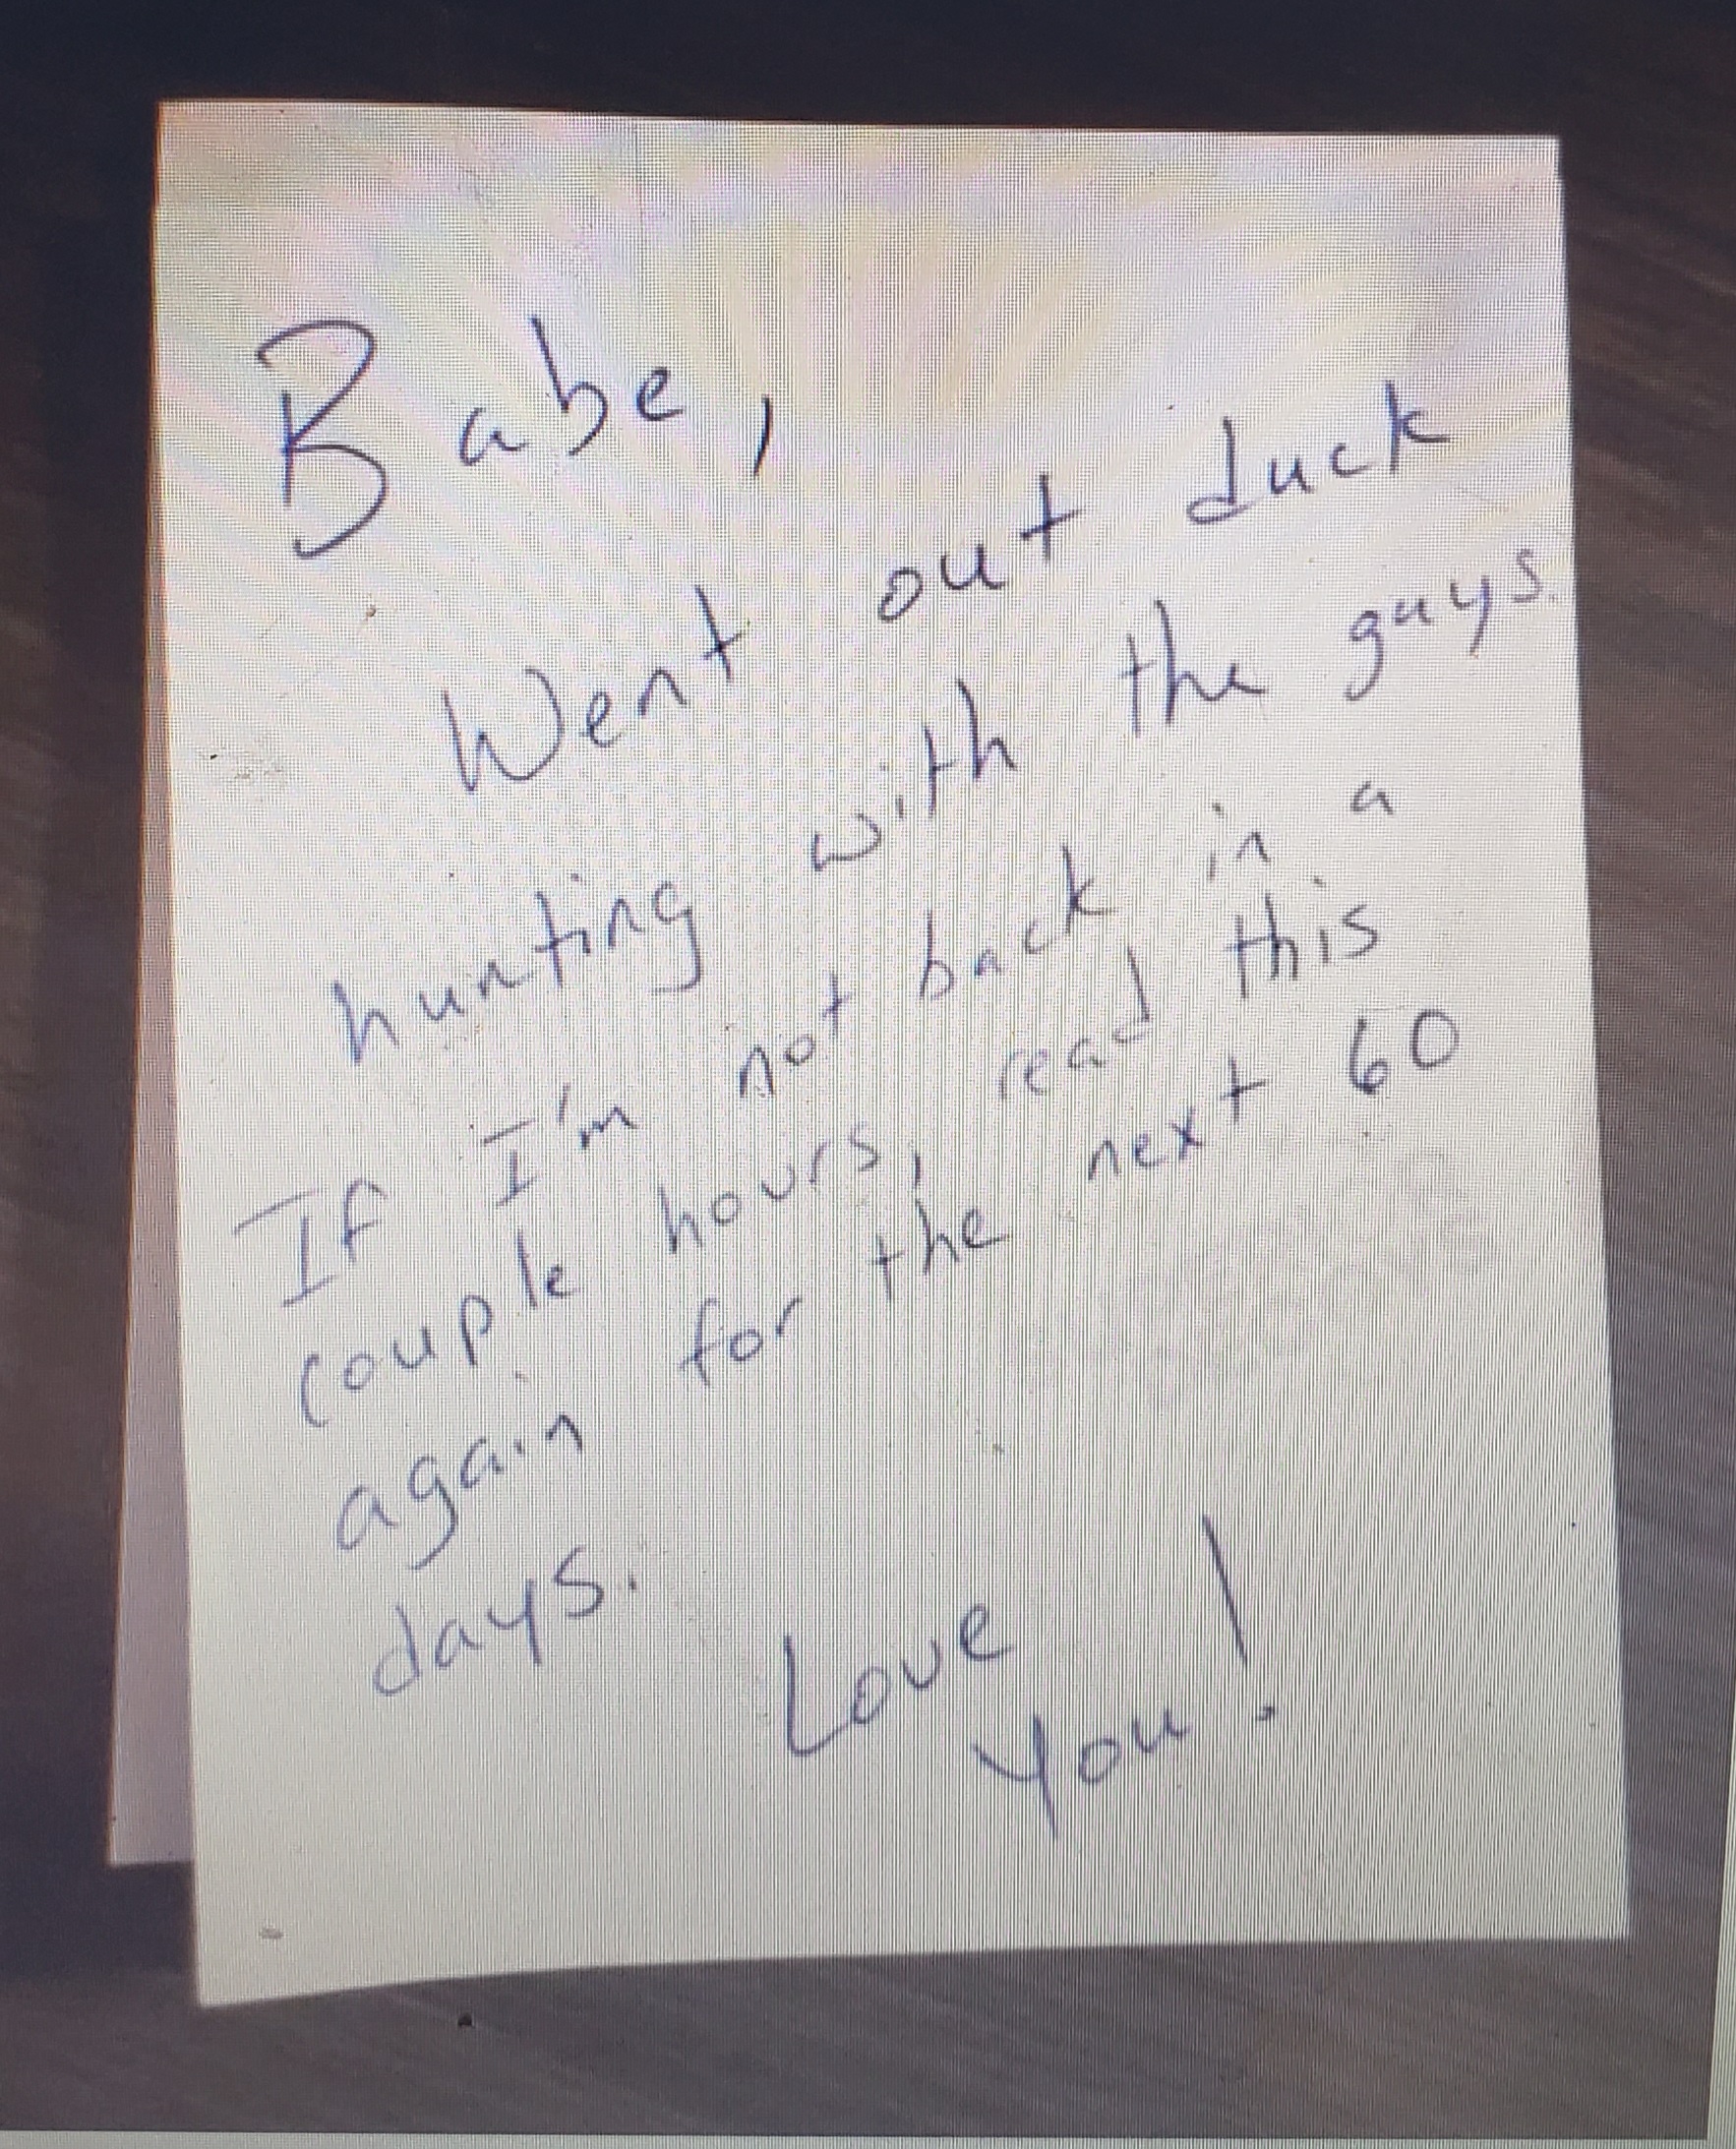 Babe,
Went out duck
hunting with the guys.
If I'm not back in a
couple hours, read this
again for the next 60
days.
Love
You!